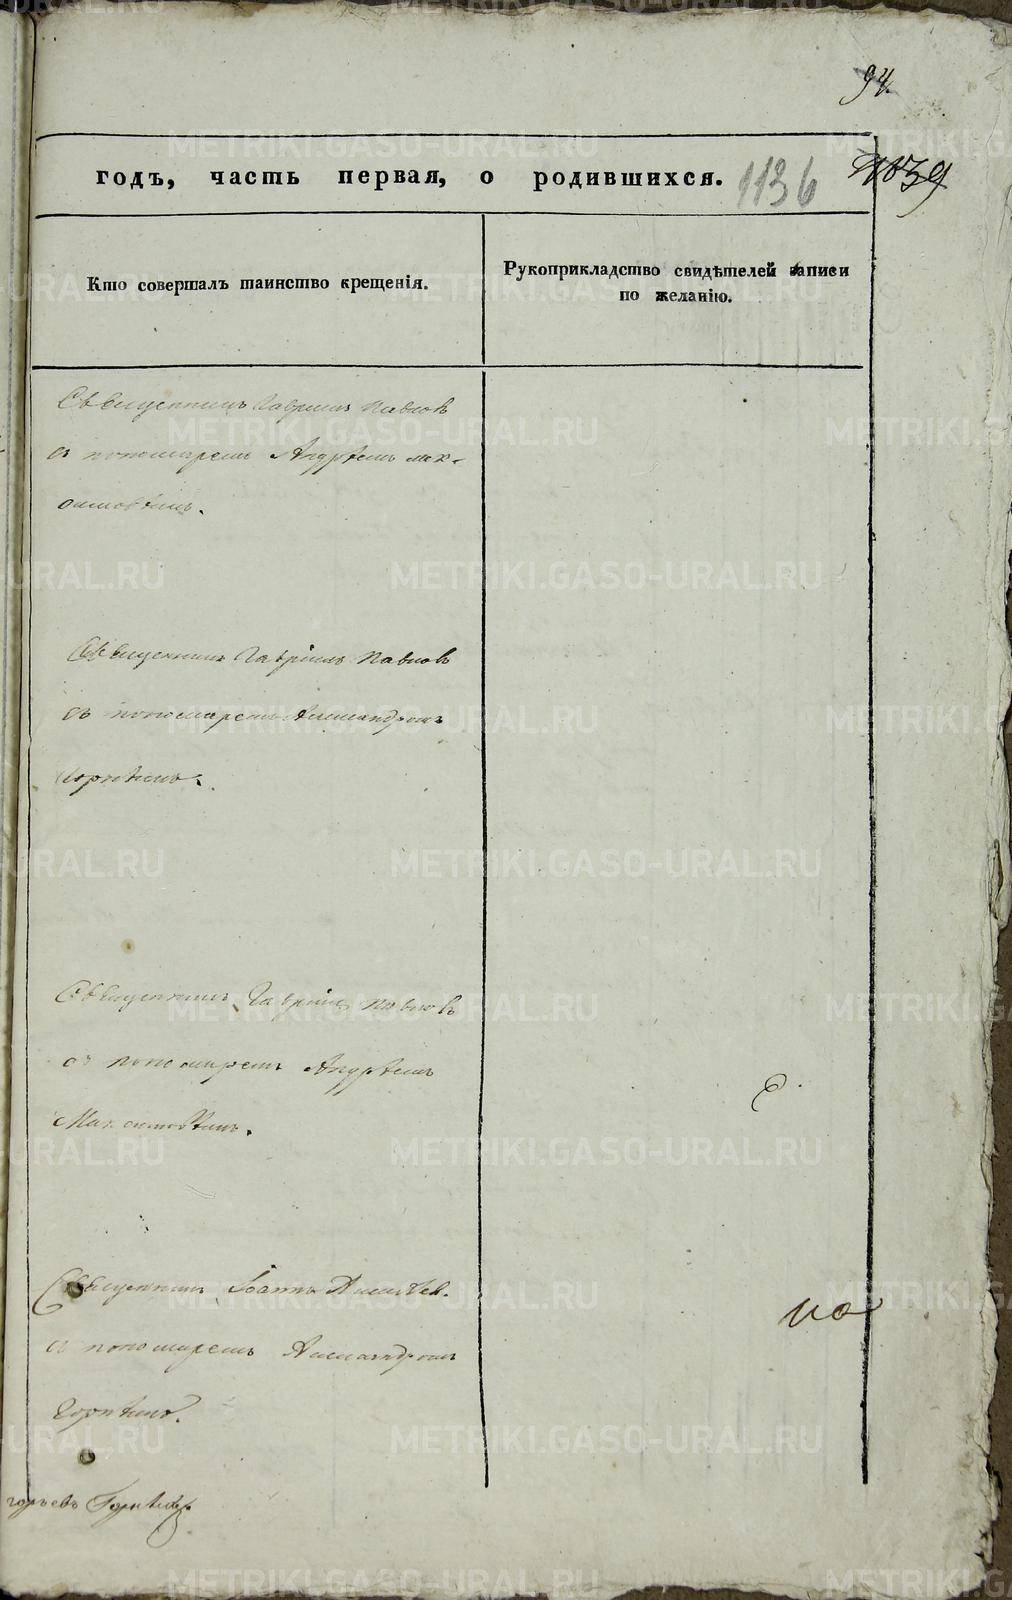 94.
годъ, часть первая, о родившихся. 1136 1039
Кто совершалъ таинство крещенія.
Рукоприкладство свидѣтелей записи
по желанію.
Священникъ Гавріилъ Павловъ
съ пономаремъ Андрѣемъ Мак-
симовымъ.
Священникъ Гавріилъ Павловъ
съ пономаремъ Александромъ
Горнѣимъ.
Священникъ Гавріилъ Павловъ
съ пономаремъ Андрѣемъ
Максимовымъ.
Священникъ Іоаннъ
съ пономаремъ Александромъ
но
METRIKI.GASO-URAL.RU